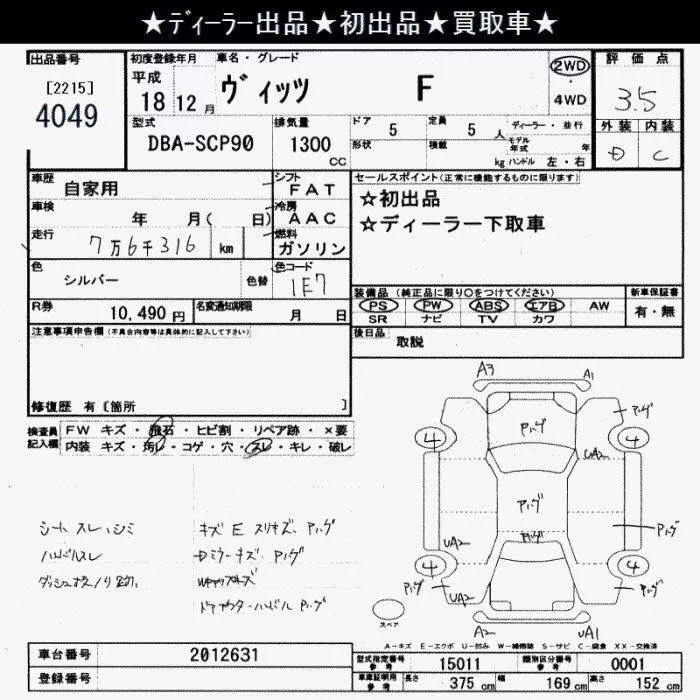 ★ディーラー出品★初出品★買取車★
出品番号
[2215]
4049
初度登録年月
平成
18 12 月
車名・グレード
ヴィッツ F
2WD
・
4WD
評価点
3.5
型式
DBA-SCP90
排気量
1300
CC
ドア 5 定員 5 人
形状 積載 kg
ディーラー・並行
モデル年式 年
ハンドル 左・右
外装 内装
D C
車歴
自家用
シフト
FAT
車検
年 月( 日)
冷房
AAC
走行
7万6千316 km
燃料
ガソリン
色
シルバー
色替
色コード
1E7
R券
10,490 円
名変通知期限
月 日
セールスポイント(正常に機能するものに限ります)
☆初出品
☆ディーラー下取車
装備品(純正品に限り○をつけてください)
PS PW ABS エアB AW
SR ナビ TV カワ
新車保証書
有・無
後日品
取説
注意事項申告欄(不具合内容等は具体的に記入して下さい)
修復歴 有 [箇所 ]
検査員
記入欄
FW キズ・飛石・ヒビ割・リペア跡・×要
内装 キズ・汚レ・コゲ・穴・スレ・キレ・破レ
シート スレ、シミ
ハンドルスレ
キズ E スリキズ、アバタ
Dミラーキズ、アバタ
A3 A1
4 4
UA2
UA2
4 4
UA2
A2 UA1
スペア
A-キズ E-エクボ U-凹み W-補修跡 S-サビ C-腐食 XX-交換済
車台番号
2012631
登録番号
型式指定番号
参考
15011
類別区分番号
参考
0001
車庫証明用
参考
長さ 375 cm
幅 169 cm
高さ 152 cm